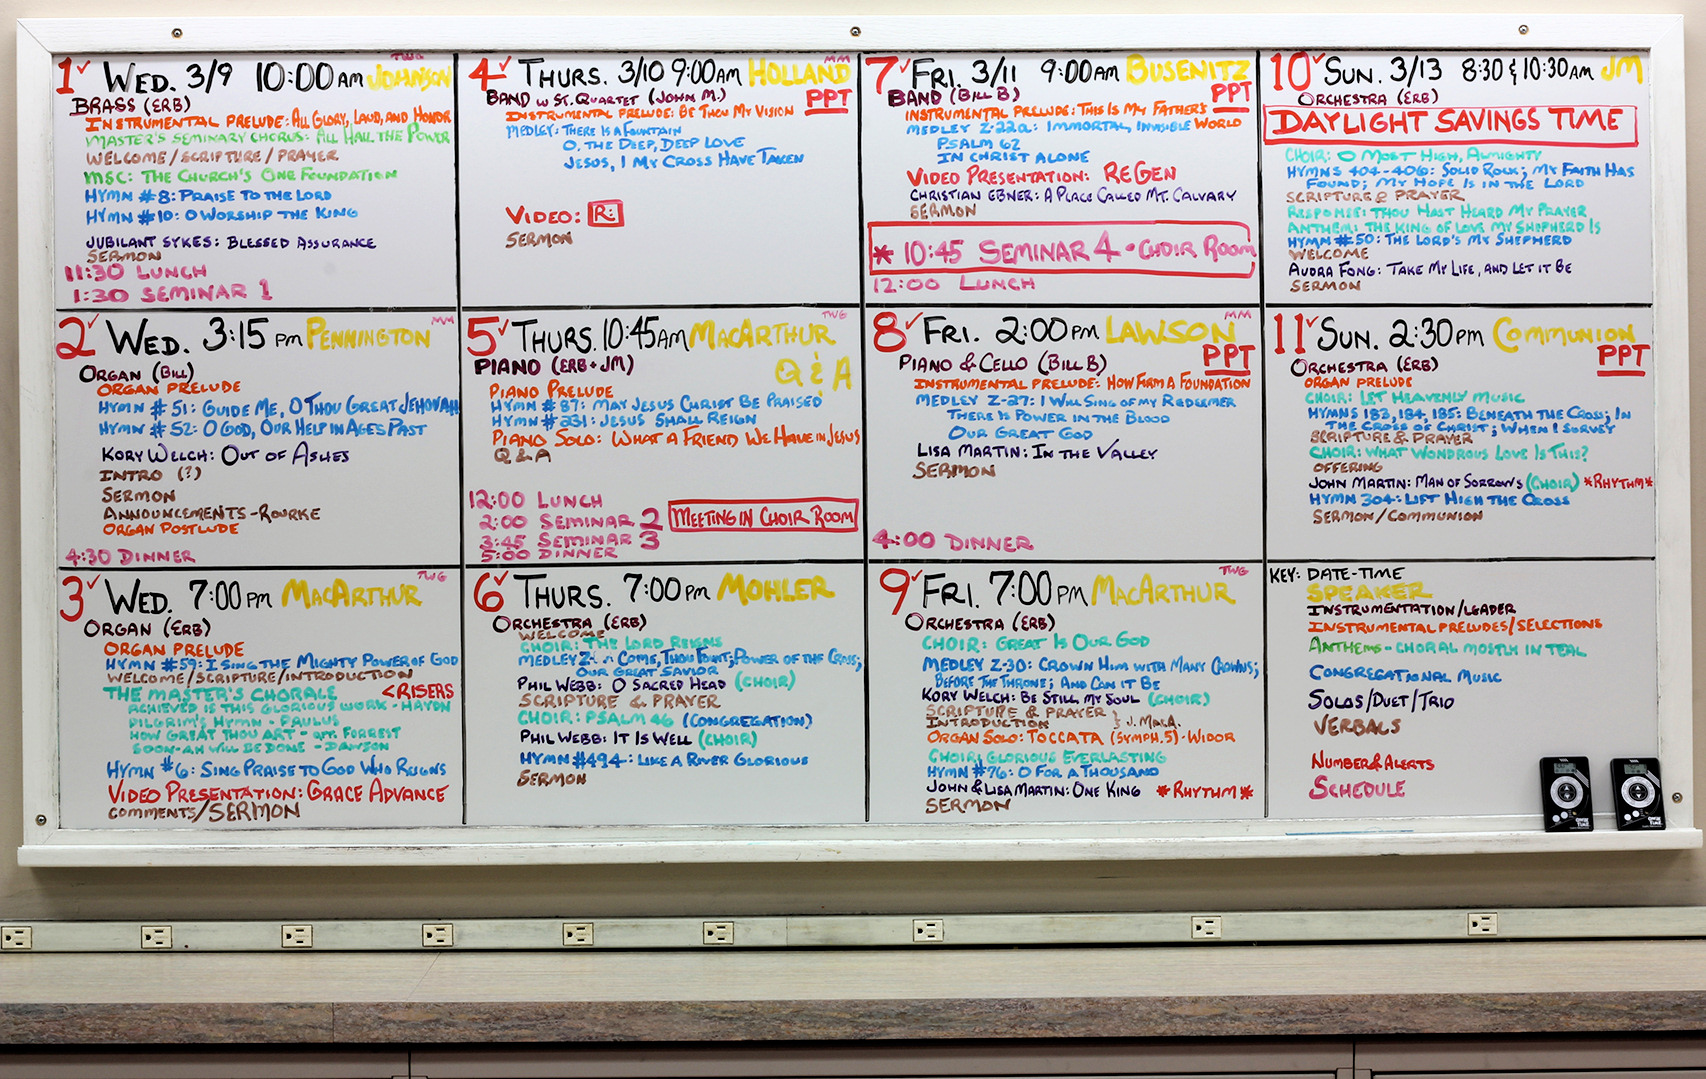 1✓ WED. 3/9 10:00 AM JOHNSON TWG
BRASS (ERB)
INSTRUMENTAL PRELUDE: ALL GLORY, LAUD, AND HONOR
MASTER'S SEMINARY CHORUS: ALL HAIL THE POWER
WELCOME/SCRIPTURE/PRAYER
MSC: THE CHURCH'S ONE FOUNDATION
HYMN #8: PRAISE TO THE LORD
HYMN #10: O WORSHIP THE KING
JUBILANT SYKES: BLESSED ASSURANCE
SERMON
11:30 LUNCH
1:30 SEMINAR 1
2✓ WED. 3:15 PM PENNINGTON MM
ORGAN (BILL)
ORGAN PRELUDE
HYMN #51: GUIDE ME, O THOU GREAT JEHOVAH
HYMN #52: O GOD, OUR HELP IN AGES PAST
KORY WELCH: OUT OF ASHES
INTRO (?)
SERMON
ANNOUNCEMENTS - ROURKE
ORGAN POSTLUDE
4:30 DINNER
3✓ WED. 7:00 PM MACARTHUR TWG
ORGAN (ERB)
ORGAN PRELUDE
HYMN #59: I SING THE MIGHTY POWER OF GOD
WELCOME/SCRIPTURE/INTRODUCTION
THE MASTER'S CHORALE <RISERS
ACHIEVED IS THIS GLORIOUS WORK - HAYDN
PILGRIM'S HYMN - PAULUS
HOW GREAT THOU ART - arr. FORREST
SOON-AH WILL BE DONE - DAWSON
HYMN #6: SING PRAISE TO GOD WHO REIGNS
VIDEO PRESENTATION: GRACE ADVANCE
COMMENTS/SERMON
4✓ THURS. 3/10 9:00AM HOLLAND MM
BAND W ST. QUARTET (JOHN M.) PPT
INSTRUMENTAL PRELUDE: BE THOU MY VISION
MEDLEY: THERE IS A FOUNTAIN
O, THE DEEP, DEEP LOVE
JESUS, I MY CROSS HAVE TAKEN
VIDEO: R:
SERMON
5✓ THURS. 10:45AM MACARTHUR TWG
PIANO (ERB + JM) Q & A
PIANO PRELUDE
HYMN #87: MAY JESUS CHRIST BE PRAISED
HYMN #231: JESUS SHALL REIGN
PIANO SOLO: WHAT A FRIEND WE HAVE IN JESUS
Q & A
12:00 LUNCH
2:00 SEMINAR 2 MEETING IN CHOIR ROOM
3:45 SEMINAR 3
5:00 DINNER
6✓ THURS. 7:00 PM MOHLER
ORCHESTRA (ERB)
WELCOME
CHOIR: THE LORD REIGNS
MEDLEY Z- COME, THOU FOUNT; POWER OF THE CROSS;
OUR GREAT SAVIOR
PHIL WEBB: O SACRED HEAD (CHOIR)
SCRIPTURE & PRAYER
CHOIR: PSALM 46 (CONGREGATION)
PHIL WEBB: IT IS WELL (CHOIR)
HYMN #494: LIKE A RIVER GLORIOUS
SERMON
7✓ FRI. 3/11 9:00AM BUSENITZ
BAND (BILL B) PPT
INSTRUMENTAL PRELUDE: THIS IS MY FATHER'S WORLD
MEDLEY Z-22a: IMMORTAL, INVISIBLE
PSALM 62
IN CHRIST ALONE
VIDEO PRESENTATION: REGEN
CHRISTIAN EBNER: A PLACE CALLED MT. CALVARY
SERMON
* 10:45 SEMINAR 4 - CHOIR ROOM
12:00 LUNCH
8✓ FRI. 2:00 PM LAWSON MM
PIANO & CELLO (BILL B) PPT
INSTRUMENTAL PRELUDE: HOW FIRM A FOUNDATION
MEDLEY Z-27: I WILL SING OF MY REDEEMER
THERE IS POWER IN THE BLOOD
OUR GREAT GOD
LISA MARTIN: IN THE VALLEY
SERMON
4:00 DINNER
9✓ FRI. 7:00 PM MACARTHUR TWG
ORCHESTRA (ERB)
CHOIR: GREAT IS OUR GOD
MEDLEY Z-30: CROWN HIM WITH MANY CROWNS;
BEFORE THE THRONE; AND CAN IT BE
KORY WELCH: BE STILL MY SOUL (CHOIR)
SCRIPTURE & PRAYER
INTRODUCTION } J. MACA.
ORGAN SOLO: TOCCATA (SYMPH.5) - WIDOR
CHOIR: GLORIOUS EVERLASTING
HYMN #76: O FOR A THOUSAND
JOHN & LISA MARTIN: ONE KING *RHYTHM*
SERMON
10✓ SUN. 3/13 8:30 & 10:30AM JM
ORCHESTRA (ERB)
DAYLIGHT SAVINGS TIME
CHOIR: O MOST HIGH, ALMIGHTY
HYMNS 404-406: SOLID ROCK; MY FAITH HAS
FOUND; MY HOPE IS IN THE LORD
SCRIPTURE & PRAYER
RESPONSE: THOU HAST HEARD MY PRAYER
ANTHEM: THE KING OF LOVE MY SHEPHERD IS
HYMN #50: THE LORD'S MY SHEPHERD
WELCOME
AUDRA FONG: TAKE MY LIFE, AND LET IT BE
SERMON
11✓ SUN. 2:30PM COMMUNION
ORCHESTRA (ERB) PPT
ORGAN PRELUDE
CHOIR: LET HEAVENLY MUSIC
HYMNS 183, 184, 185: BENEATH THE CROSS; IN
THE CROSS OF CHRIST; WHEN I SURVEY
SCRIPTURE & PRAYER
CHOIR: WHAT WONDROUS LOVE IS THIS?
OFFERING
JOHN MARTIN: MAN OF SORROWS (CHOIR) *RHYTHM*
HYMN 304: LIFT HIGH THE CROSS
SERMON/COMMUNION
KEY: DATE-TIME
SPEAKER
INSTRUMENTATION/LEADER
INSTRUMENTAL PRELUDES/SELECTIONS
ANTHEMS - CHORAL MOSTLY IN TEAL
CONGREGATIONAL MUSIC
SOLOS/DUET/TRIO
VERBALS
NUMBER & ALERTS
SCHEDULE